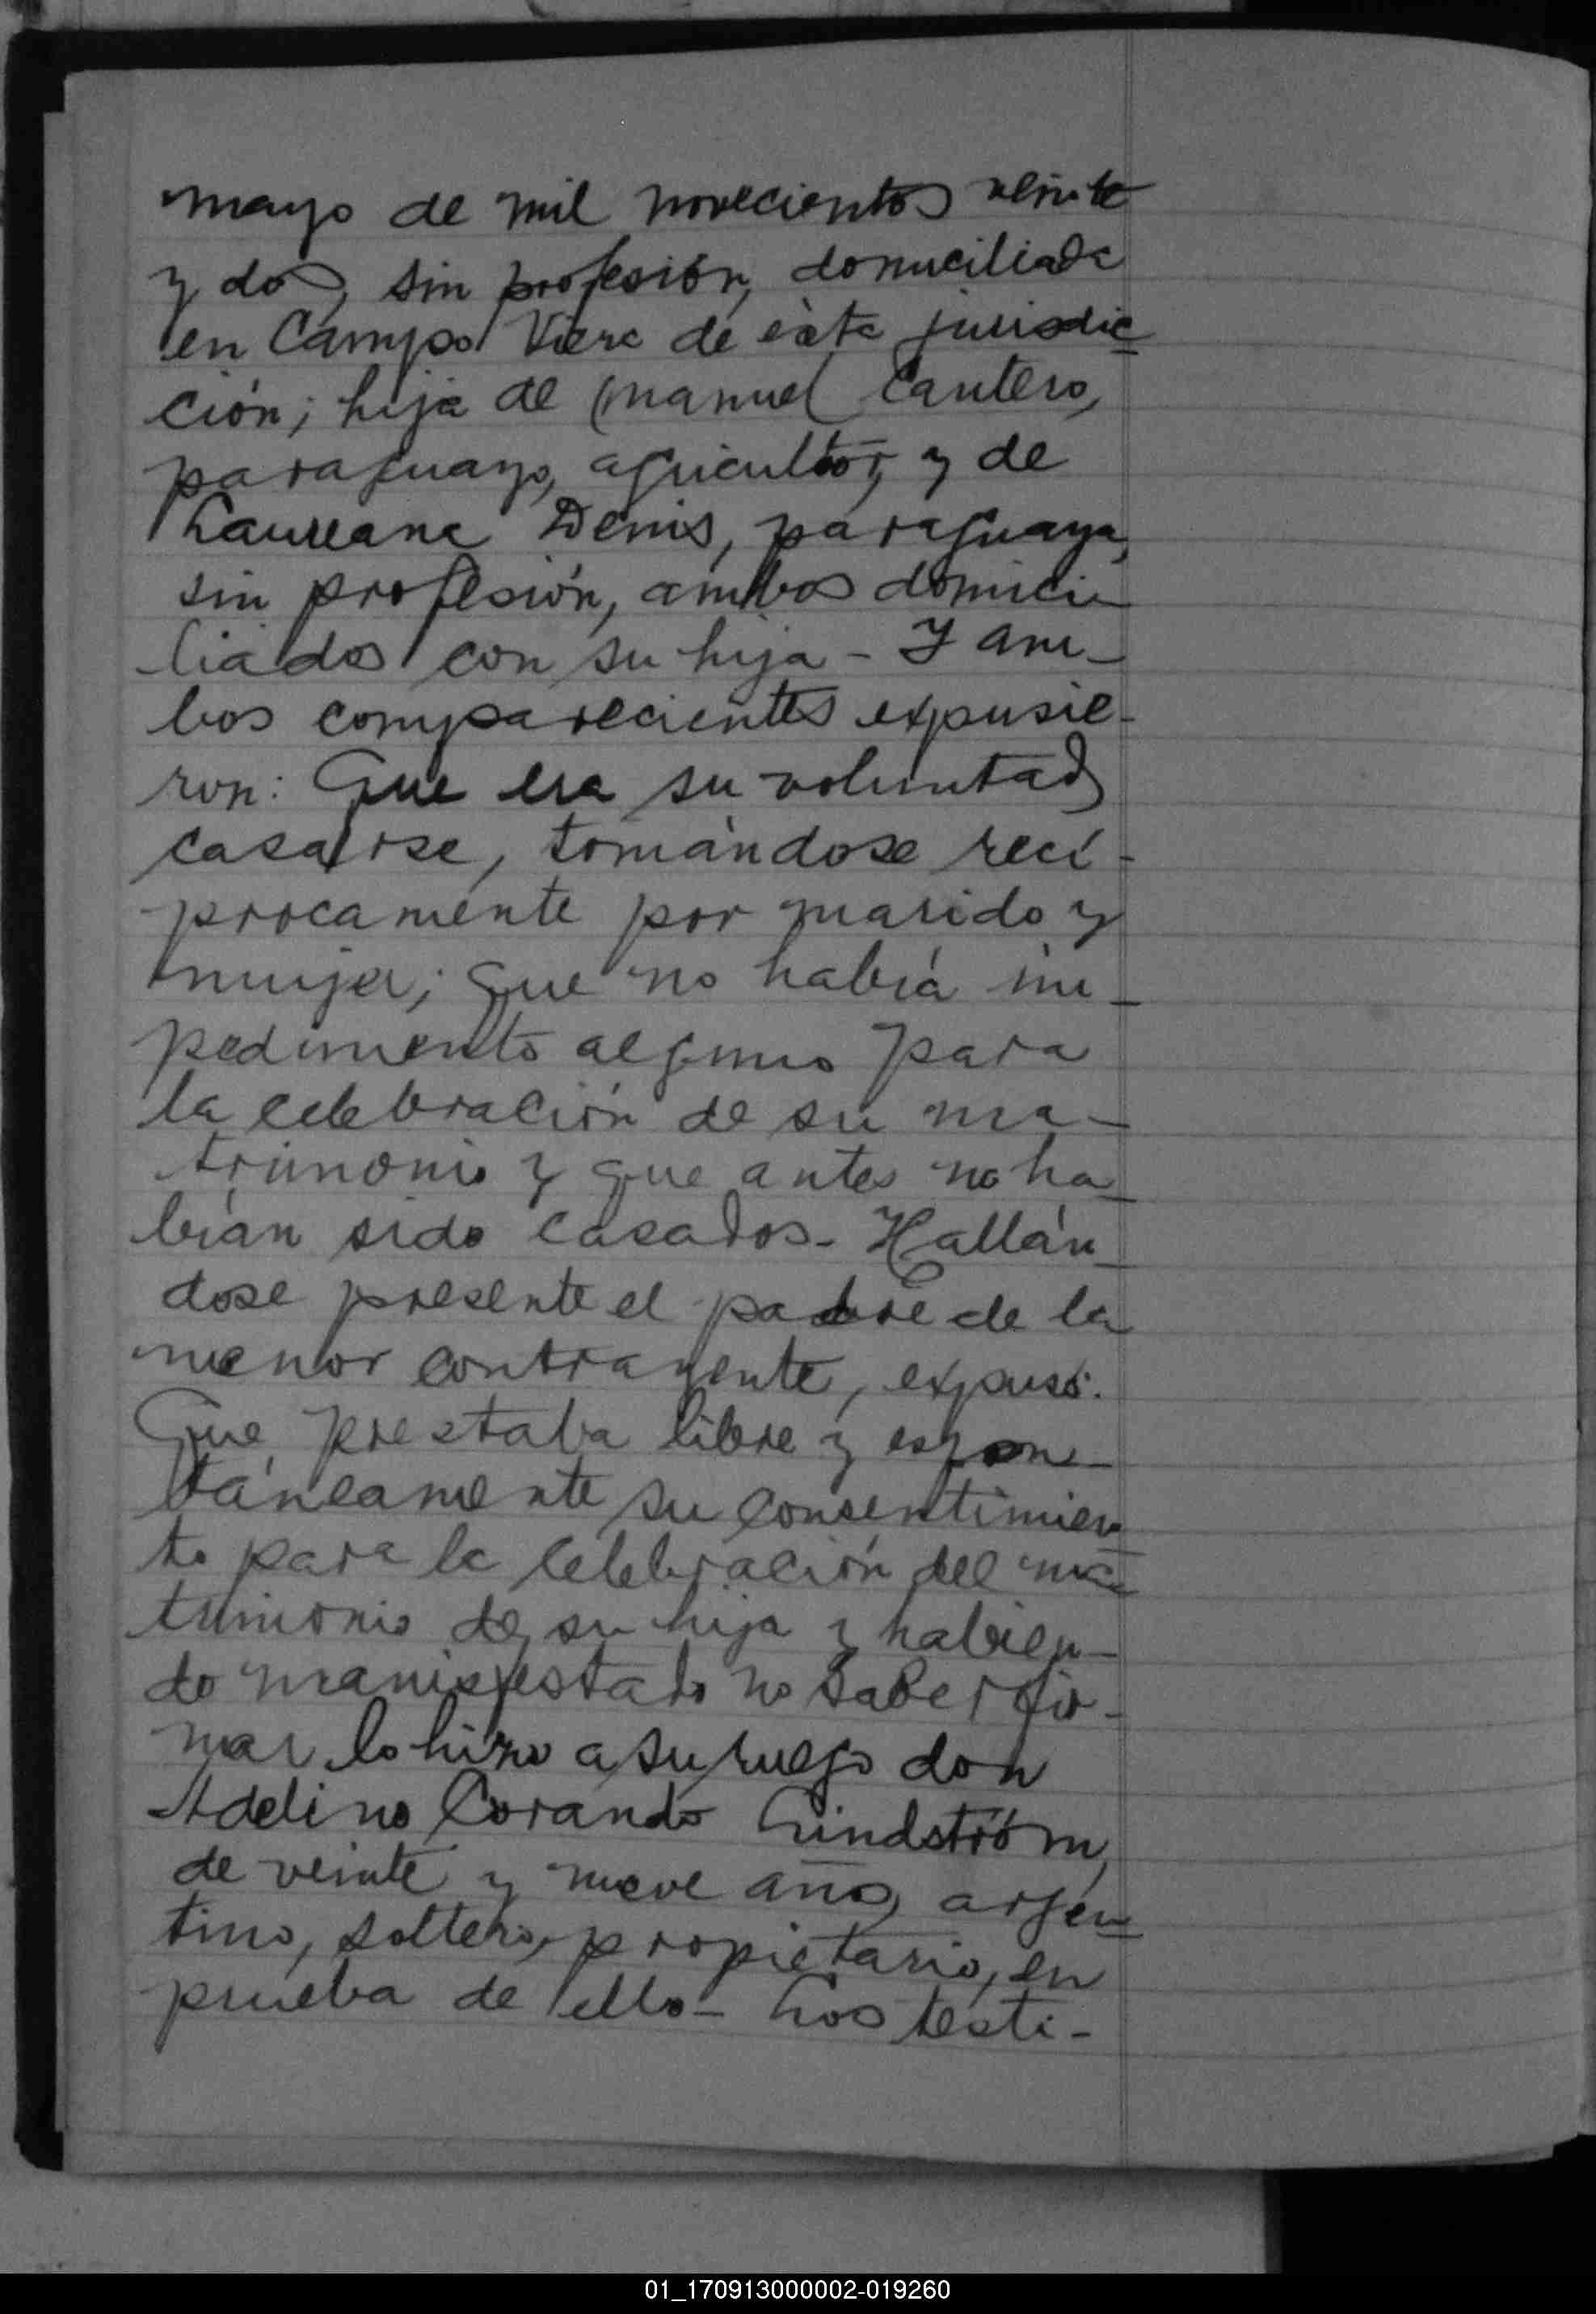 mayo de mil novecientos veinte
y dos, sin profesión, domiciliada
en Campo Viera de ésta jurisdic
ción; hija de Manuel Cantero,
paraguayo, agricultor, y de
Laureana Denis, paraguaya,
sin profesión, ambos domici-
liados con su hija - Y am-
bos comparecientes expusie-
ron: Que era su voluntad
casarse, tomándose recí-
procamente por marido y
mujer; que no había im-
pedimento alguno para
la celebración de su ma-
trimonio y que antes no ha-
bían sido casados - Hallán-
dose presente el padre de la
menor contrayente, expuso:
Que prestaba libre y espon-
táneamente su consentimien
to para la celebración del ma-
trimonio de su hija y habien-
do manifestado no saber fir-
mar lo hizo a su ruego don
Adelino Corando Lindström,
de veinte y nueve años, argen-
tino, soltero, propietario, en
prueba de ello - Los testi-
01_170913000002-019260